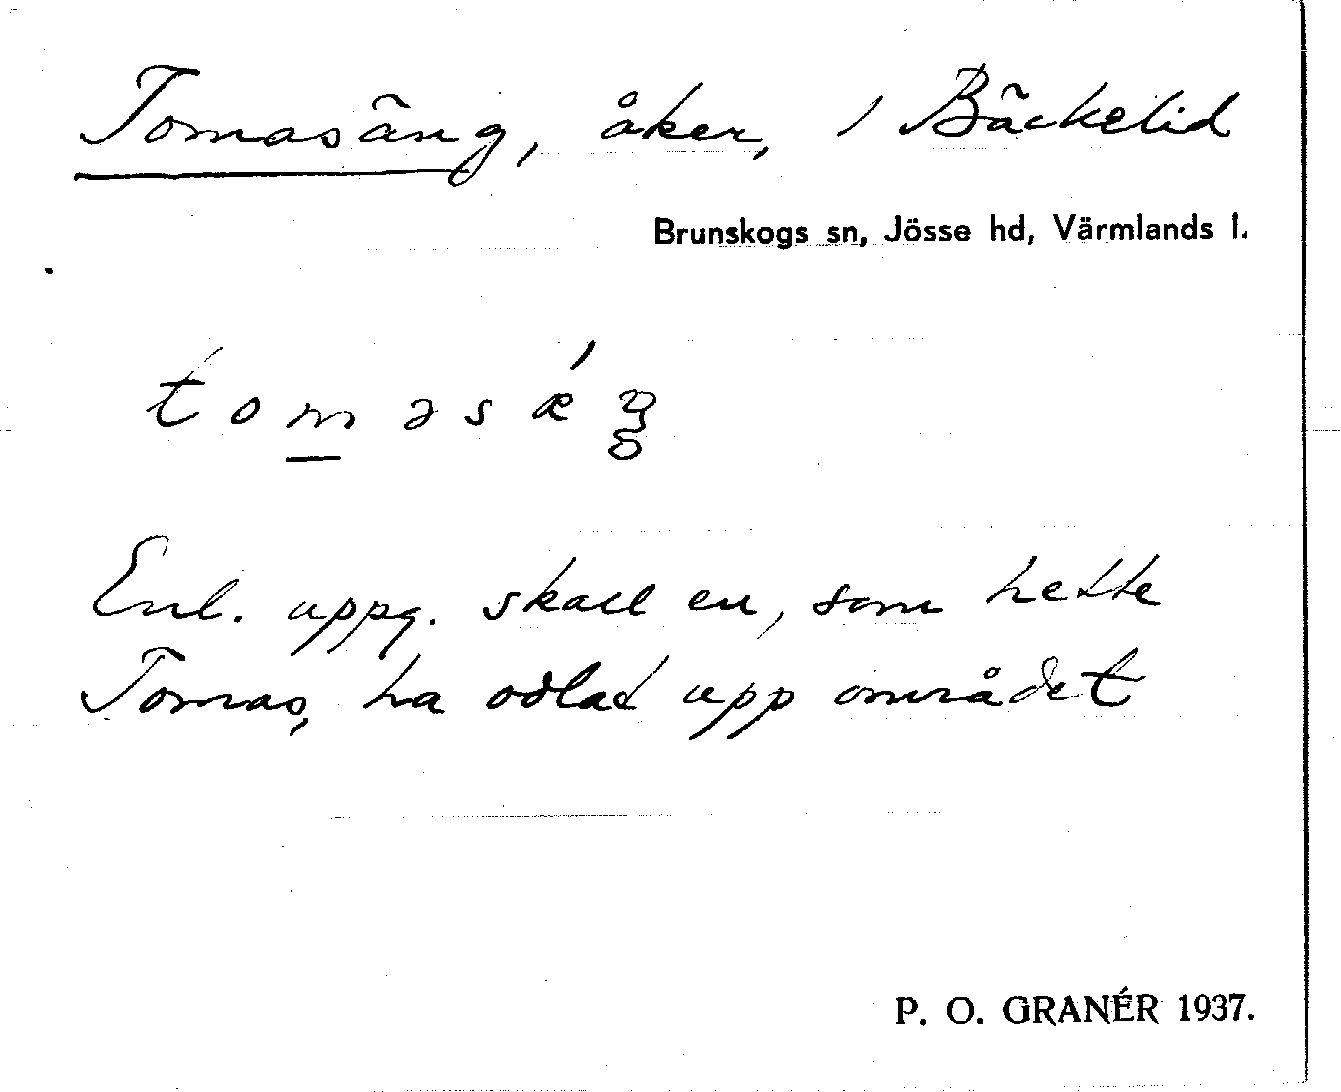 Tomasäng, åker, / Bäckelid
Brunskogs sn, Jösse hd, Värmlands l.
Enl. uppg. skall en, som hette
Tomas, ha odlat upp området
P. O. GRANÉR 1937.